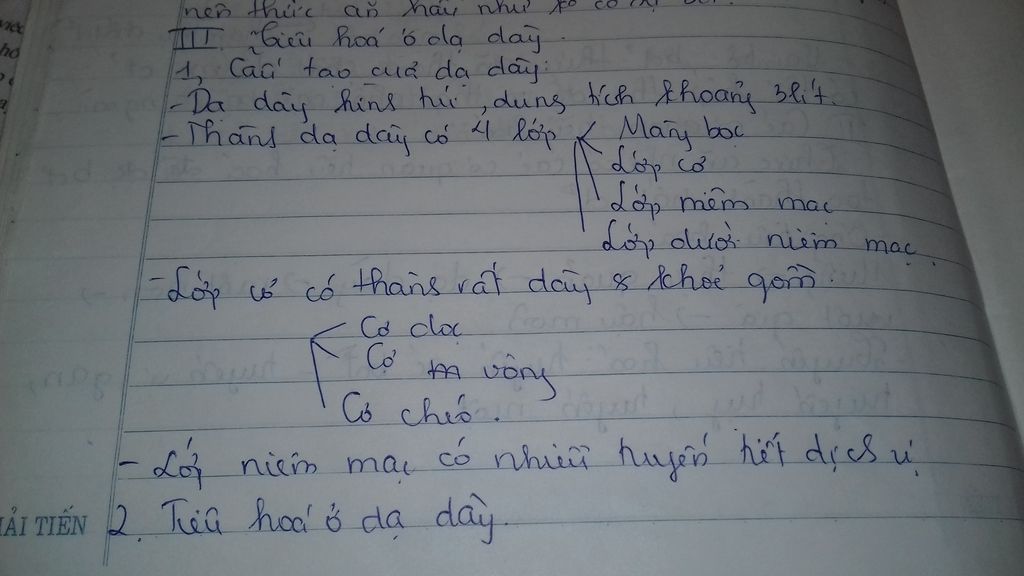 nên thức ăn hầu như ko có
III. Tiêu hoá ở dạ dày.
1, Cấu tạo của dạ dày:
- Dạ dày hình túi, dung tích khoảng 3 lít.
- Thành dạ dày có 4 lớp Màng bọc
Lớp cơ
Lớp niêm mạc
Lớp dưới niêm mạc.
- Lớp cơ có thành rất dày & khoẻ gồm:
Cơ dọc
Cơ vòng
Cơ chéo.
- Lớp niêm mạc có nhiều tuyến tiết dịch vị
HẢI TIẾN 2. Tiêu hoá ở dạ dày.